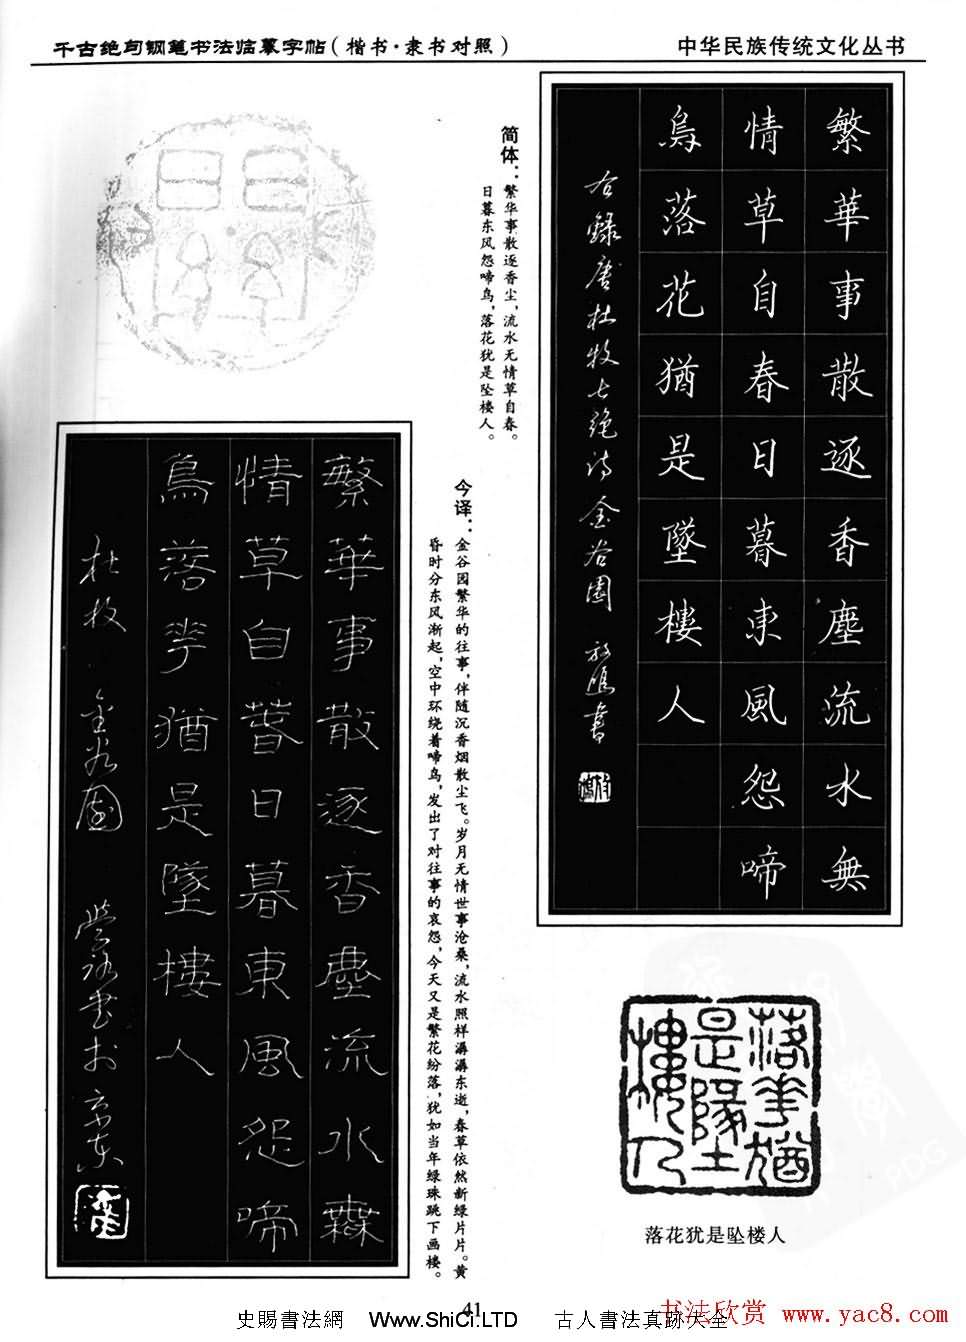 千古绝句钢笔书法临摹字帖(楷书·隶书对照)
中华民族传统文化丛书
繁華事散逐香塵流水無
情草自春日暮東風怨啼
鳥落花猶是墜樓人
右錄唐杜牧七绝诗金谷園
简体:繁华事散逐香尘,流水无情草自春。
日暮东风怨啼鸟,落花犹是坠楼人。
今译:金谷园繁华的往事,伴随沉香烟散尘飞。岁月无情世事沧桑,流水照样潺潺东逝,春草依然新绿片片。黄
昏时分东风渐起,空中环绕着啼鸟,发出了对往事的哀怨,今天又是繁花纷落,犹如当年绿珠跳下画楼。
繁華事散逐香塵流水無
情草自春日暮東風怨啼
鳥落花猶是墜樓人
杜牧 金谷園
落花猶
是墜
樓人
落花犹是坠楼人
41
史賜書法網 www.ShiCi.LTD 古人書法真跡大全
书法欣赏 www.yac8.com
PDG